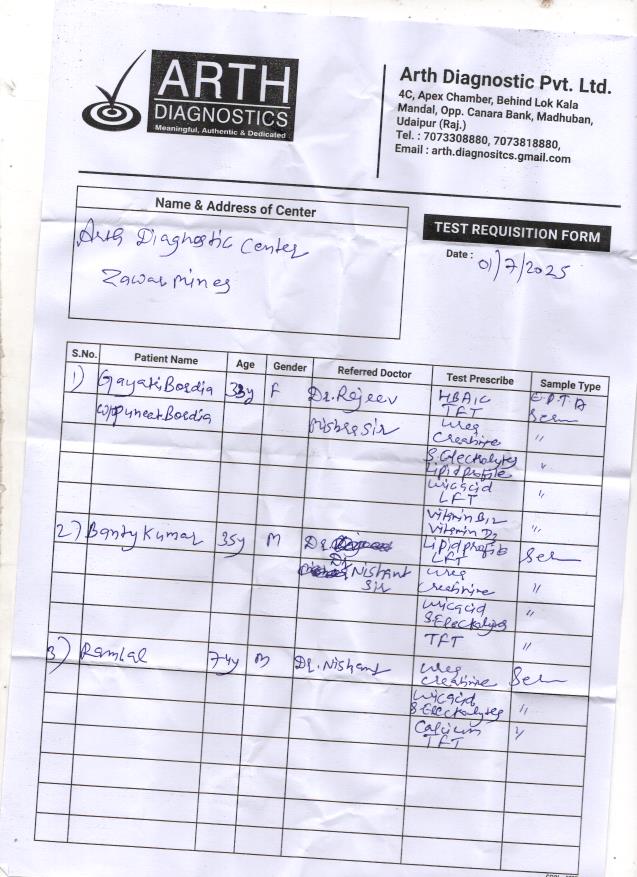 ARTH
DIAGNOSTICS
Meaningful, Authentic & Dedicated
Arth Diagnostic Pvt. Ltd.
4C, Apex Chamber, Behind Lok Kala
Mandal, Opp. Canara Bank, Madhuban,
Udaipur (Raj.)
Tel. : 7073308880, 7073818880,
Email : arth.diagnositcs.gmail.com
Name & Address of Center
Arth Diagnostic Center
Zawar mines
TEST REQUISITION FORM
Date : 01/7/2025
S.No. Patient Name Age Gender Referred Doctor Test Prescribe Sample Type
1) Gayatri Bordia F Dr. Rajeev HBA1C E.D.T.A
W/o Puneet Bordia Mishra sir TFT Ser
Urea
Creatinine "
S. Electrolytes "
Lipid profile
Uricacid "
LFT
Vitamin B12 "
Vitamin D3
2) Banty Kumar 35y M Dr. Lipid profile Ser
Dr LFT
Nishant Urea
Sir Creatinine "
Uricacid "
S. Electrolytes
TFT "
3) Ramlal 74y M Dr. Nishant Urea Ser
Creatinine
Uricacid "
S. Electrolytes
Calcium "
TFT